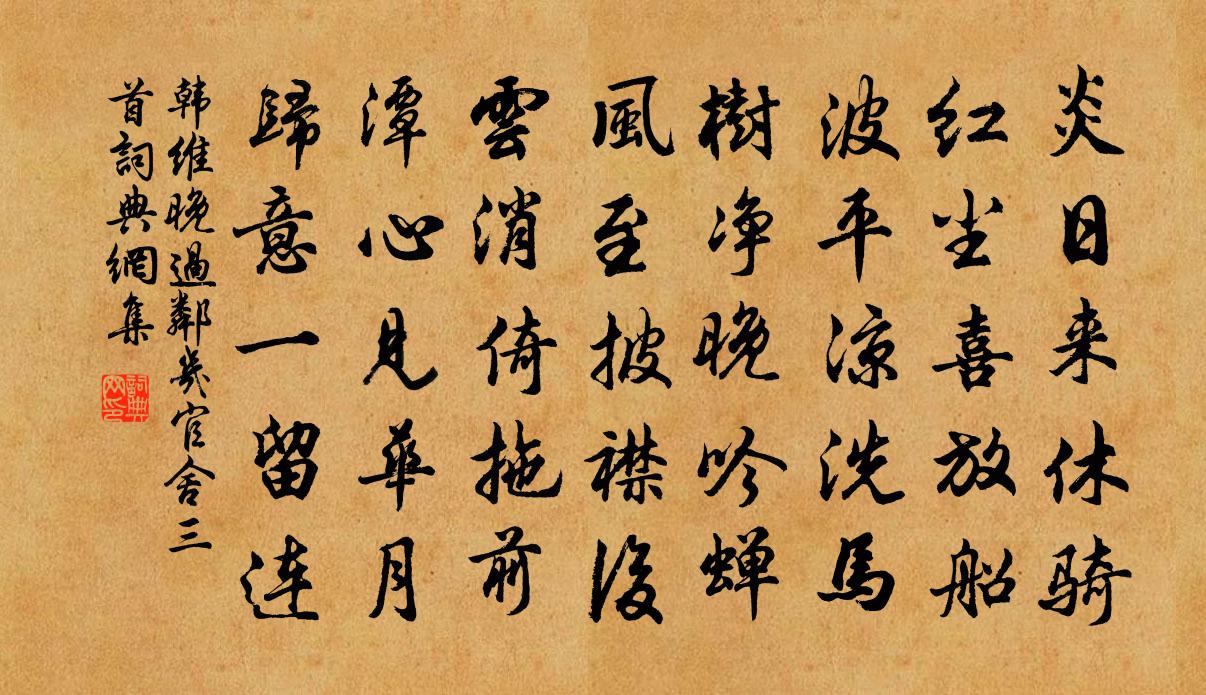 炎日来休骑
红尘喜放船
波平凉洗馬
樹净晚吟蝉
風至披襟後
雲消倚拖前
潭心見華月
歸意一留连
韩維晚過鄰幾官舍三
首詞典網集
詞典网印